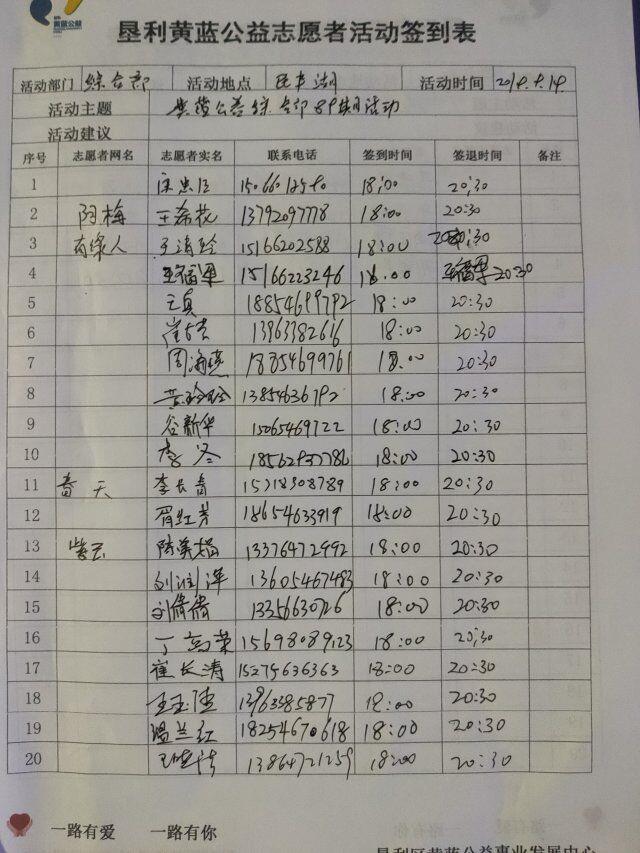 黄蓝公益
垦利黄蓝公益志愿者活动签到表
活动部门 综合部 活动地点 民丰湖 活动时间
活动主题 黄蓝公益综合部89期活动
活动建议
序号 志愿者网名 志愿者实名 联系电话 签到时间 签退时间 备注
1 18:00 20:30
2 王希花 13792097778 18:00 20:30
3 有缘人 15166202588 18:00
4 王福果 15166223246 18.00 20:30
5 王真 18854699792 18:00 20:30
6 13963382616 18:00 20:30
7 周海燕 18854699761 18.00 20:30
8 黄玲玲 13854636792 18:00 20:30
9 谷新华 15065469722 18:00 20:30
10 李冬 18:00 20:30
11 春天 李长青 15318308789 18:00 20:30
12 胥红芳 18654633919 18:00 20:30
13 紫云 陈美娟 13376472992 18:00 20:30
14 13605467483 18:00 20:30
15 刘倩倩 13356630726 18:00 20:30
16 丁高荣 15698089123 18:00 20:30
17 崔长涛 15275636363 18:00 20:30
18 13963385877 18:00 20:30
19 温兰红 18254670618 18:00 20:30
20 13864721259 18:00 20:30
一路有爱 一路有你
垦利区黄蓝公益事业发展中心